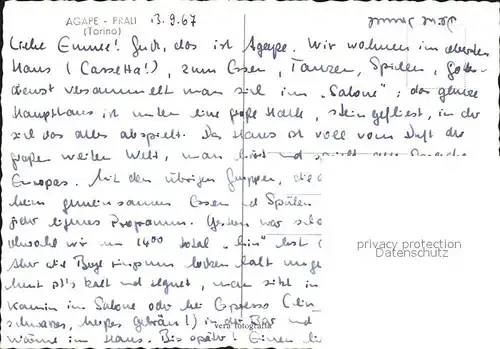 AGAPE - PRALI 13.9.67
(Torino)
Liebe Emmi! Guck, das ist Agape. Wir wohnen im obersten
Haus (Cassetta!), zum Essen, Tanzen, Spielen, Gottes-
dienst versammelt man sich im "Salone": das ganze
Haupthaus ist unten eine große Halle, steingefliest, in der
sich das alles abspielt. Das Haus ist voll vom Duft der
großen weiten Welt, man hört und spricht alle Sprachen
Europas. Mit den übrigen Gruppen, die
beim gemeinsamen Essen und Spielen
jeder eigenes Programm. Gestern war
obwohl wir um 1400 total "hin"
Aber die Berge ringsum locken halt
heut ist's kalt und regnet, man sitzt im
Kamin im Salone oder bei Espresso (
schwarzes, heißes Getränk!) in der Bar und
wärme im Haus. Bis später! Einen
privacy protection
Datenschutz
vera fotografia